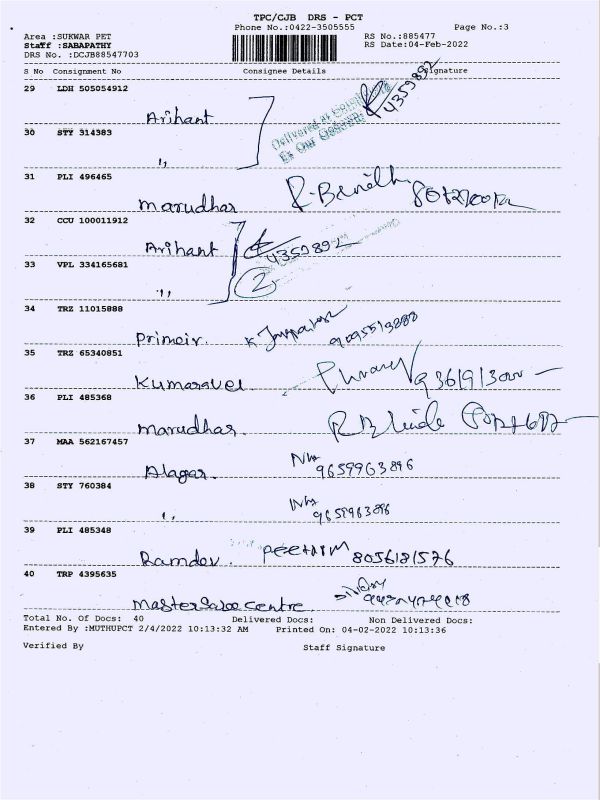 TPC/CJB DRS - PCT
Phone No.:0422-3505555 Page No.:3
Area :SUKWAR PET RS No.:885477
Staff :SABAPATHY RS Date:04-Feb-2022
DRS No. :DCJB88547703
S No Consignment No Consignee Details Signature
29 LDH 505054912
Arihant 4359892
Delivered at
Ex Our Godown
30 STY 314383
"
31 PLI 496465
Marudhar
32 CCU 100011912
Arihant 4359892
33 VPL 334165681
" 2
34 TRZ 11015888
Premeir. K
35 TRZ 65340851
Kumaravel.
36 PLI 485368
Marudhar.
37 MAA 562167457
Alagar. 9659963896
38 STY 760384
" 9659963896
39 PLI 485348
Ramdev. 8056181576
40 TRP 4395635
Master Sales Centre
Total No. Of Docs: 40 Delivered Docs: Non Delivered Docs:
Entered By :MUTHUPCT 2/4/2022 10:13:32 AM Printed On: 04-02-2022 10:13:36
Verified By Staff Signature